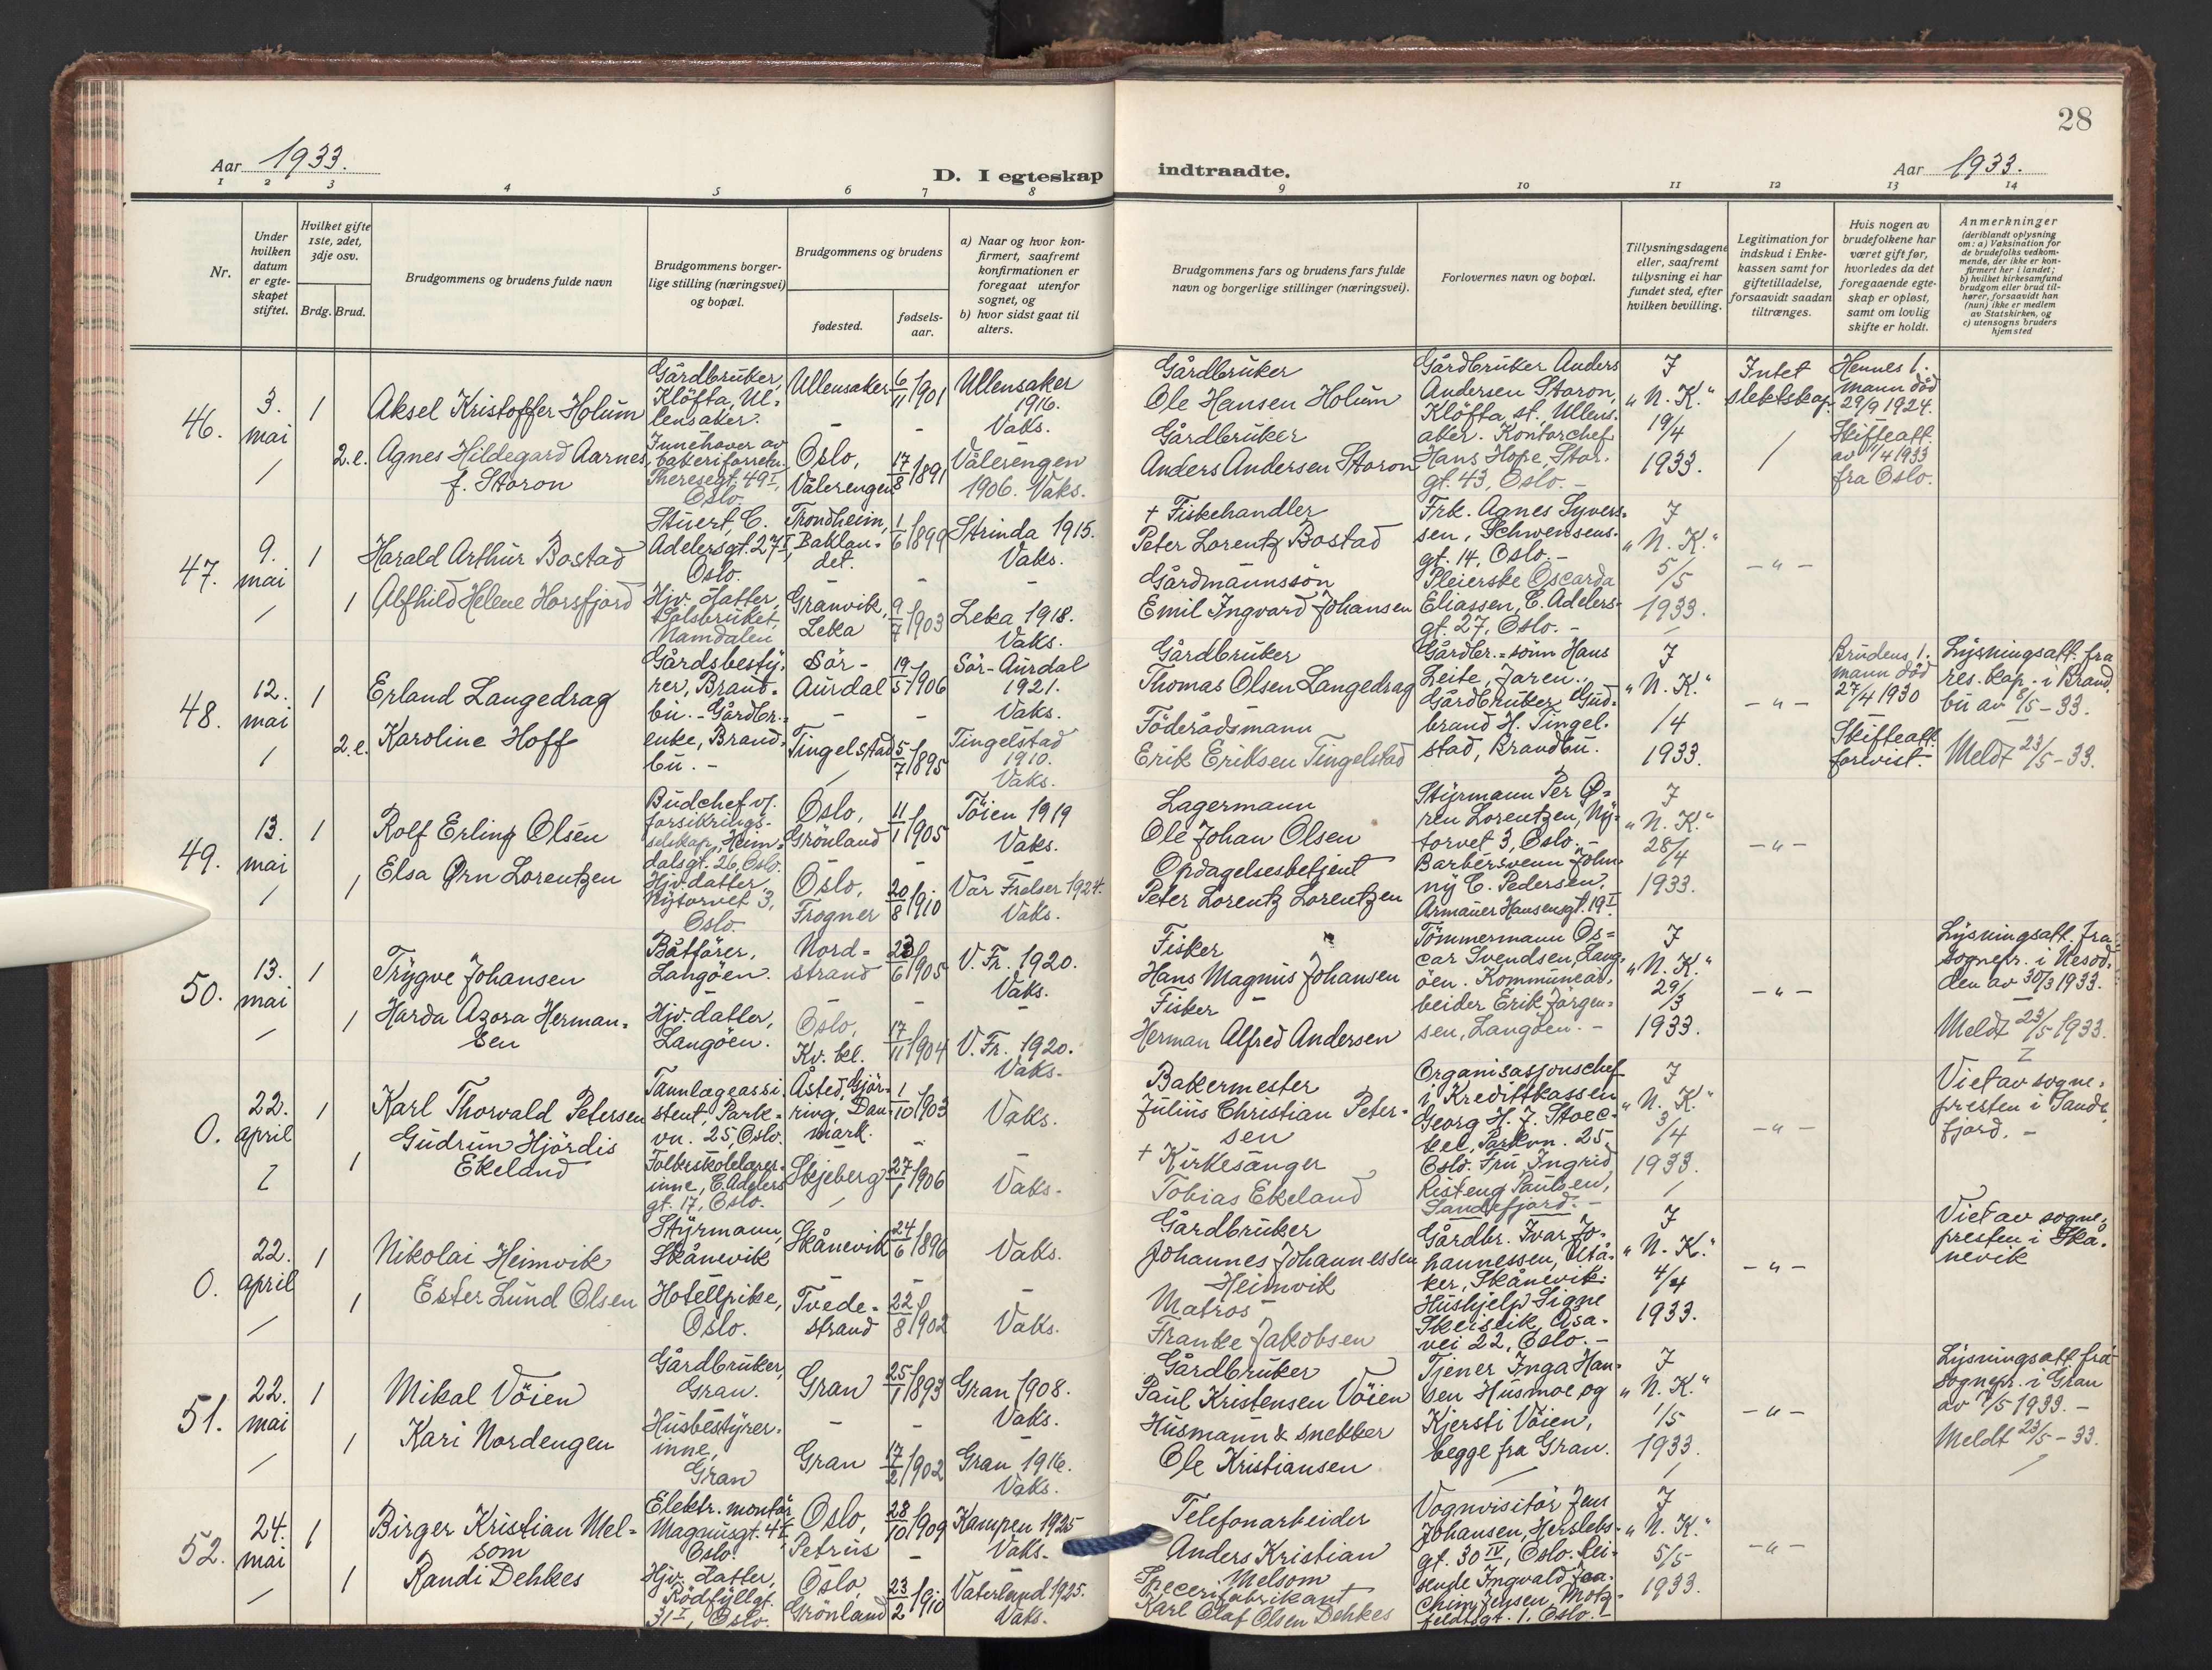 28
Aar 1933.
D. I egteskap indtraadte.
Aar 1933.
1 2 3 4 5 6 7 8 9 10 11 12 13 14
Nr.
Under hvilken datum er egteskapet stiftet.
Hvilket gifte 1ste, 2det, 3dje osv.
Brdg. Brud.
Brudgommens og brudens fulde navn
Brudgommens borgerlige stilling (næringsvei) og bopæl.
Brudgommens og brudens
fødested.
fødselsaar.
a) Naar og hvor konfirmert, saafremt konfirmationen er foregaat utenfor sognet, og
b) hvor sidst gaat til alters.
Brudgommens fars og brudens fars fulde navn og borgerlige stillinger (næringsvei).
Forlovernes navn og bopæl.
Tillysningsdagene eller, saafremt tillysning ei har fundet sted, efter hvilken bevilling.
Legitimation for indskud i Enkekassen samt for giftetilladelse, forsaavidt saadan tiltrænges.
Hvis nogen av brudefolkene har været gift før, hvorledes da det foregaaende egteskap er opløst, samt om lovlig skifte er holdt.
Anmerkninger (deriblandt oplysning om: a) Vaksination for de brudefolks vedkommende, der ikke er konfirmert her i landet; b) hvilket kirkesamfund brudgom eller brud tilhører, forsaavidt han (hun) ikke er medlem av Statskirken, og c) utensogns bruders hjemsted
46. 3. mai 1 Aksel Kristoffer Holum
Gårdbruker, Klöfta, Ullensaker.
Ullensaker 6/11 1901 Ullensaker 1916. Vaks.
Gårdbruker Ole Hansen Holum
Gårdbruker Anders Andersen Storon, Klöfta st. Ullensaker. Kontorchef Hans Hope, Storgt. 43, Oslo.-
I "N. K." 19/4 1933.
Intet slektskap.
Hennes 1. mann död 29/9 1924. Skifteatt. av 1/4 1933 fra Oslo.
2.e. Agnes Hildegard Aarnes f. Storon
Innehaver av bakeriforretn. Theresegt. 49 I, Oslo.
Oslo, Vålerengen 17/8 1891 Vålerengen 1906. Vaks.
Gårdbruker Anders Andersen Storon
47. 9. mai 1 Harald Arthur Bostad
Stuert, C. Adelersgt. 27 I, Oslo.
Trondheim, Baklandet. 1/6 1899 Strinda 1915. Vaks.
+ Fiskehandler Peter Lorentz Bostad
Frk. Agnes Syversen, Schwensensgt. 14, Oslo.- Pleierske Oscarda Eliassen, C. Adelersgt. 27, Oslo. -
I "N. K." 5/5 1933.
- " -
1 Alfhild Helene Horsfjord
Hjv. datter, Kolsbruket, Namdalen
Granvik, Leka 9/7 1903 Leka 1918. Vaks.
Gårdmannssön Emil Ingvard Johansen
48. 12. mai 1 Erland Langedrag
Gårdsbestyrer, Brandbu. - Gårdbr.=enke, Brandbu. -
Sör-Aurdal 19/5 1906 Sör-Aurdal 1921. Vaks.
Gårdbruker Thomas Olsen Langedrag
Gårdbr.=sönn Hans Leite, Jaren. Gårdbruker Gudbrand H. Tingelstad, Brandbu.
I "N. K." 14 1933.
- " -
Brudens 1. mann död 27/4 1930 Skifteatt. forevist.
Lysningsatt. fra res. kap. i Brandbu av 8/5 - 33.
Meldt 23/5 - 33.
2.e. Karoline Hoff
Tingelstad 5/7 1895 Tingelstad 1910. Vaks.
Föderådsmann Erik Eriksen Tingelstad
49. 13. mai 1 Rolf Erling Olsen
Budchef v/ forsikringsselskap, Heimdalsgt. 26, Oslo.
Oslo, Grönland 11/1 1905 Töien 1919 Vaks.
Lagermann Ole Johan Olsen
Styrmann Per Ørn Lorentzen, Nytorvet 3, Oslo.- Barbersvenn Johnny C. Pedersen, Armauer Hansensgt. 19 I.
I "N. K." 28/4 1933.
- " -
1 Elsa Ørn Lorentzen
Hjv. datter, Nytorvet 3, Oslo.
Oslo, Frogner 20/8 1910 Vår Frelser 1924. Vaks.
Opdagelsesbetjent Peter Lorentz Lorentzen
50. 13. mai 1 Trygve Johansen
Båtförer, Langöen.
Nordstrand 23/6 1905 V. Fr. 1920. Vaks.
Fisker Hans Magnus Johansen
Tömmermann Oscar Svendsen, Langöen. Kommunearbeider Erik Jörgensen, Langöen. -
I "N. K." 29/3 1933.
- " -
Lysningsatt. fra sognepr. i Nesodden av 30/3 1933.
Meldt 23/5 1933.
1 Harda Azora Hermansen
Hjv. datter, Langöen.
Oslo, Kv. bel. 17/11 1904 V. Fr. 1920. Vaks.
Fisker Herman Alfred Andersen
0. 22. april 1 Karl Thorvald Petersen
Tannlegeassistent, Parkvn. 25, Oslo.
Åsted, Hjörring, Danmark. 1/10 1903 Vaks.
Bakermester Julius Christian Petersen
Organisasjonschef i Kredittkassen Georg H. J. Stoeckel, Parkvn. 25, Oslo. Fru Ingrid Risteng Paulsen, Sandefjord. -
I "N. K." 3/4 1933.
- " -
Viet av sognepresten i Sandefjord. -
1 Gudrun Hjördis Ekeland
Folkeskolelærerinne, C. Adelersgt. 17, Oslo.
Skjeberg 27/1 1906 Vaks.
+ Kirkesanger Tobias Ekeland
0. 22. april 1 Nikolai Heimvik
Styrmann, Skånevik
Skånevik 24/6 1896 Vaks.
Gårdbruker Johannes Johannessen Heimvik
Gårdbr. Ivar Johannessen, Utåker, Skånevik. Hushjelp Signe Skeiseik, Åsavei 22, Oslo. -
I "N. K." 4/4 1933.
- " -
Viet av sognepresten i Skånevik
1 Ester Lund Olsen
Hotellpike, Oslo.
Tvedestrand 22/8 1902 Vaks.
Matros Franke Jakobsen
51. 22. mai 1 Mikal Vöien
Gårdbruker, Gran.
Gran 25/1 1893 Gran 1908. Vaks.
Gårdbruker Paul Kristensen Vöien
Tjener Inga Hansen Husmoe og Kjersti Vöien, begge fra Gran.
I "N. K." 1/5 1933.
- " -
Lysningsatt. fra sognepr. i Gran av 7/5 1933. -
Meldt 23/5 - 33.
1 Kari Nordengen
Husbestyrerinne, Gran
Gran 17/2 1902 Gran 1916. Vaks.
Husmann & snekker Ole Kristiansen
52. 24. mai 1 Birger Kristian Melsom
Elektr. montör Magnusgt. 4 I, Oslo.
Oslo, Petrus 28/10 1909 Kampen 1925 Vaks.
Telefonarbeider Anders Kristian Melsom
Vognvisitör Jens Johansen, Herslebsgt. 30 IV, Oslo. Reisende Ingvald Joachim Jensen, Motzfeldtsgt. 1, Oslo.
I "N. K." 5/5 1933.
- " -
1 Randi Dehkes
Hjv. datter, Rödfyllgt. 31 I, Oslo.
Oslo, Grönland 23/2 1910 Vaterland 1925. Vaks.
Specerifabrikant Karl Olaf Olsen Dehkes